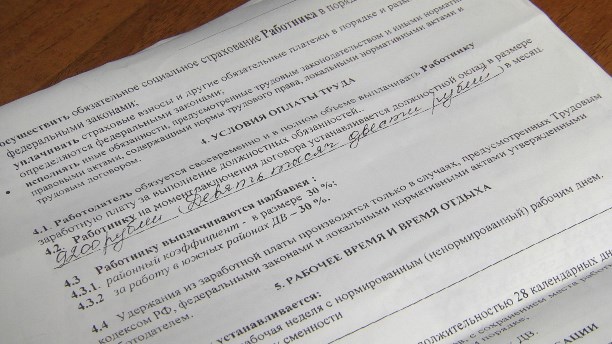 осуществить обязательное социальное страхование Работника в поряд
федеральными законами;
уплачивать страховые взносы и другие обязательные платежи в порядке и разм
определяются федеральными законами;
• исполнять иные обязанности, предусмотренные трудовым законодательством и иными норматив
правовыми актами, содержащими нормы трудового права, локальными нормативными актами и
трудовым договором.
4. УСЛОВИЯ ОПЛАТЫ ТРУДА
4.1. Работодатель обязуется своевременно и в полном объеме выплачивать Работнику
заработную плату за выполнение должностных обязанностей.
4.2. Работнику на момент заключения договора устанавливается должностной оклад в размере
9200 рублей (Девять тысяч двести рублей) в месяц.
4.3 Работнику выплачиваются надбавки:
4.3.1. районный коэффициент - в размере 30 %;
4.3.2 за работу в южных районах ДВ – 30 %.
4.4 Удержания из заработной платы производятся только в случаях, предусмотренных Трудовым
кодексом РФ, федеральными законами и локальными нормативными актами утвержденными
ботодателем.
5. РАБОЧЕЕ ВРЕМЯ И ВРЕМЯ ОТДЫХА
устанавливается:
рабочая неделя с нормированным (ненормированным) рабочим днем.
сменности
должительностью 28 календарных дн
с сохранением места работ
порядке,
ДВ.